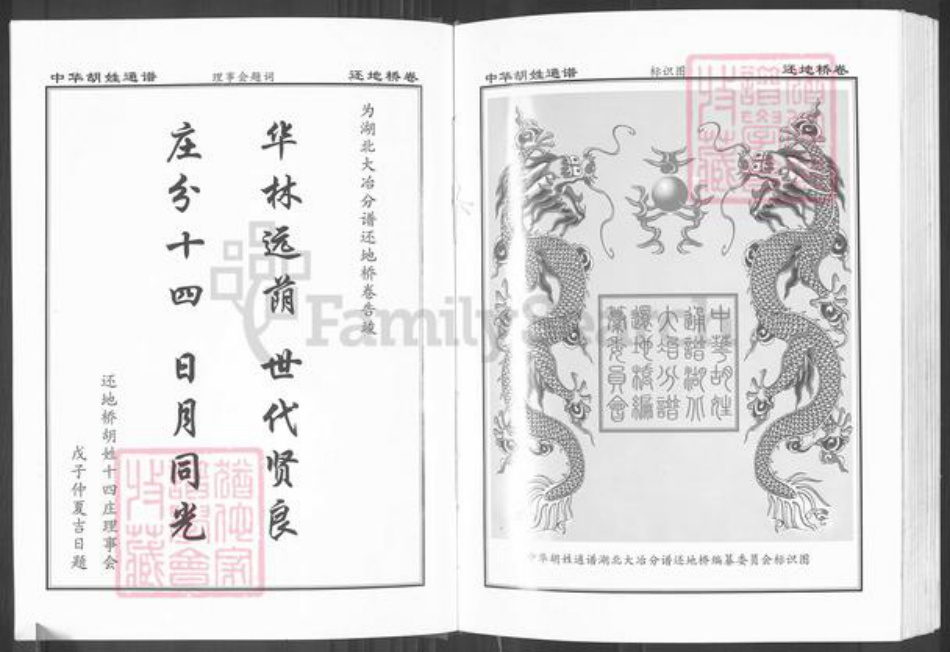 中华胡姓通谱
理事会题词
还地桥卷
为湖北大冶分谱还地桥卷告竣
华林远荫 世代贤良
庄分十四 日月同光
还地桥胡姓十四庄理事会
戊子仲夏吉日题
中华胡姓通谱
标识图
还地桥卷
中華胡姓
通譜湖北
大冶分譜
還地橋編
纂委員會
中华胡姓通谱湖北大冶分谱还地桥编纂委员会标识图
FamilySearch